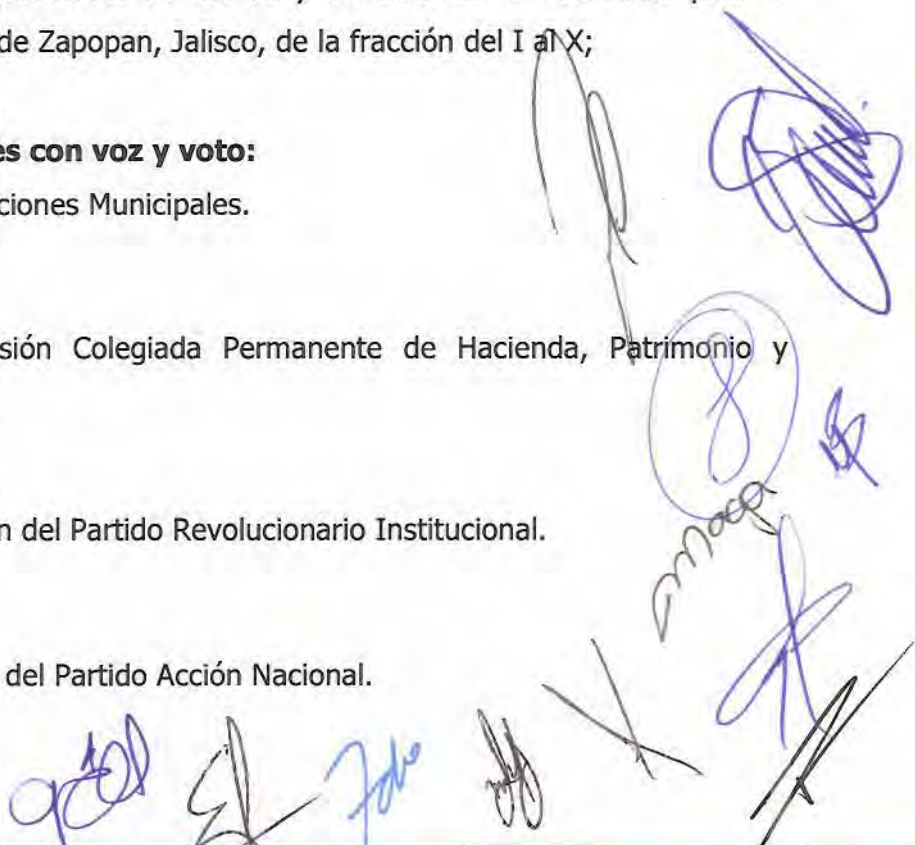 de Zapopan, Jalisco, de la fracción del I al X;
es con voz y voto:
ciones Municipales.
sión Colegiada Permanente de Hacienda, Patrimonio y
8
n del Partido Revolucionario Institucional.
del Partido Acción Nacional.